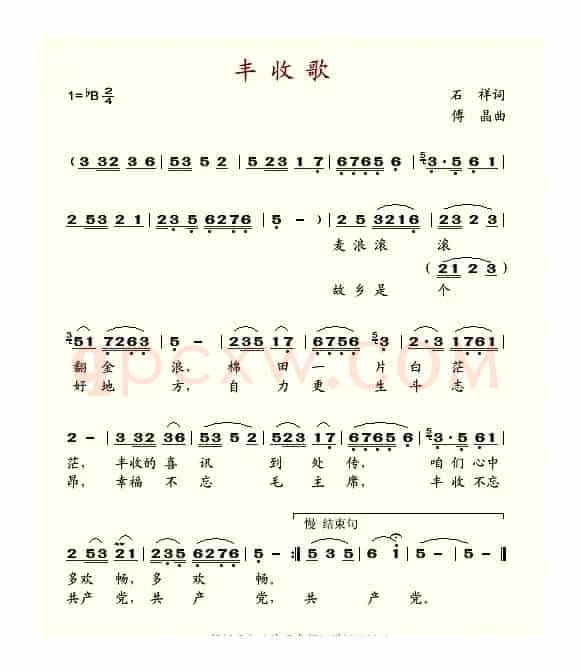 丰收歌
1=♭B 2/4
石 祥词
傅 晶曲
( 3 32 3 6 | 53 5 2 | 5 23 1 7 | 6765 6 | 3·5 6 1 |
2 53 2 1 | 23 5 6276 | 5 - ) | 2 5 3216 | 23 2 3 |
麦浪滚 滚
( 21 2 3 )
故乡是 个
51 7263 | 5 - | 235 17 | 6756 3 | 2·3 1761 |
翻金 浪， 棉 田一 片白茫
好地 方， 自 力更 生斗志
2 - | 3 32 36 | 53 5 2 | 523 17 | 6765 6 | 3·5 61 |
茫， 丰收的喜 讯 到 处 传， 咱们心中
昂， 幸福 不忘 毛 主 席， 丰收不忘
慢 结束句
2 53 21 | 235 6276 | 5 - :| 5 35 | 6 i | 5 - | 5 - ‖
多欢 畅，多 欢 畅。
共产 党，共 产 党， 共 产 党。